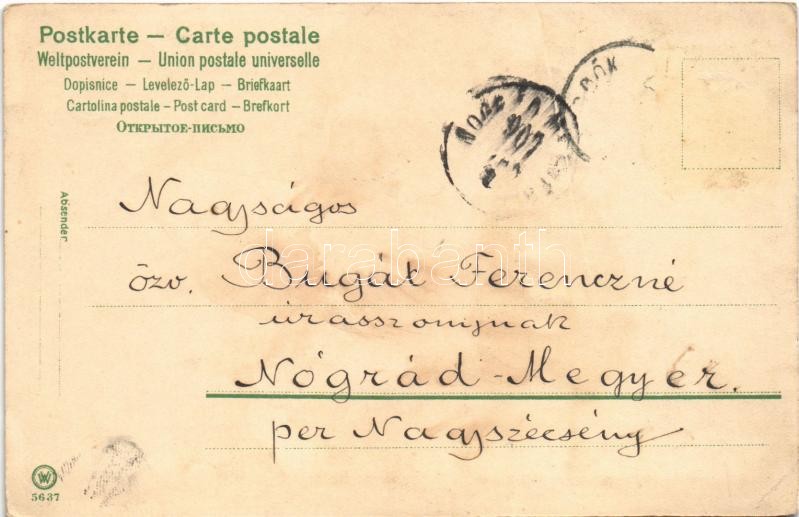 Postkarte — Carte postale
Weltpostverein — Union postale universelle
Dopisnice — Levelező-Lap — Briefkaart
Cartolina postale — Post card — Brefkort
Открытое-письмо
907
Absender
Nagyságos
özv. Bugát Ferenczné
úrasszonynak
Nógrád-Megyer.
per Nagyszécsény
darabanth.com
W
5637